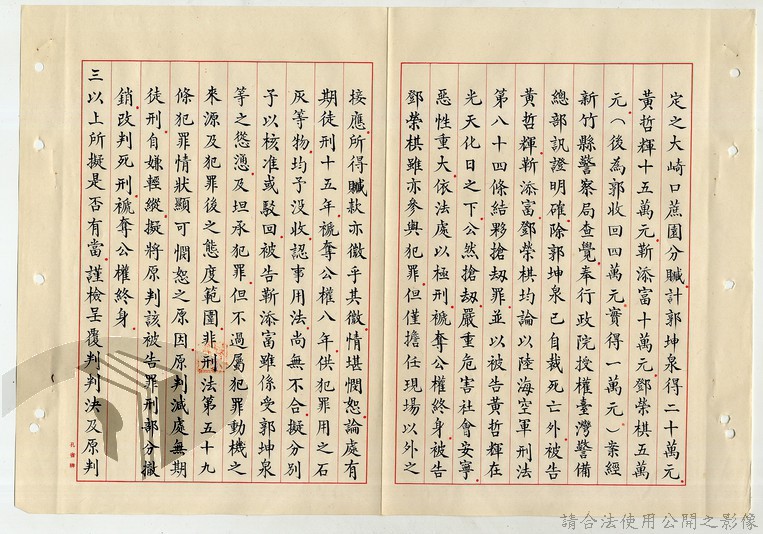 定之大崎口蔗園分贓計郭坤泉得二十萬元
黃哲輝十五萬元靳添富十萬元鄧榮棋五萬
元（後為郭收回四萬元實得一萬元）案經
新竹縣警察局查覺奉行政院授權臺灣警備
總部訊證明確除郭坤泉已自裁死亡外被告
黃哲輝靳添富鄧榮棋均論以陸海空軍刑法
第八十四條結夥搶刼罪並以被告黃哲輝在
光天化日之下公然搶刼嚴重危害社會安寧
惡性重大依法處以極刑褫奪公權終身被告
鄧榮棋雖亦參與犯罪但僅擔任現場以外之
接應所得贓款亦微乎其微情堪憫恕論處有
期徒刑十五年褫奪公權八年供犯罪用之石
灰等物均予没收認事用法尚無不合擬分別
予以核准或駁回被告靳添富雖係受郭坤泉
等之慫慂及坦承犯罪但不過屬犯罪動機之
來源及犯罪後之態度範圍非刑法第五十九
條犯罪情狀顯可憫恕之原因原判減處無期
徒刑自嫌輕縱擬將原判該被告罪刑部分撤
銷改判死刑褫奪公權終身
三以上所擬是否有當謹檢呈覆判判決及原判
請合法使用公開之影像